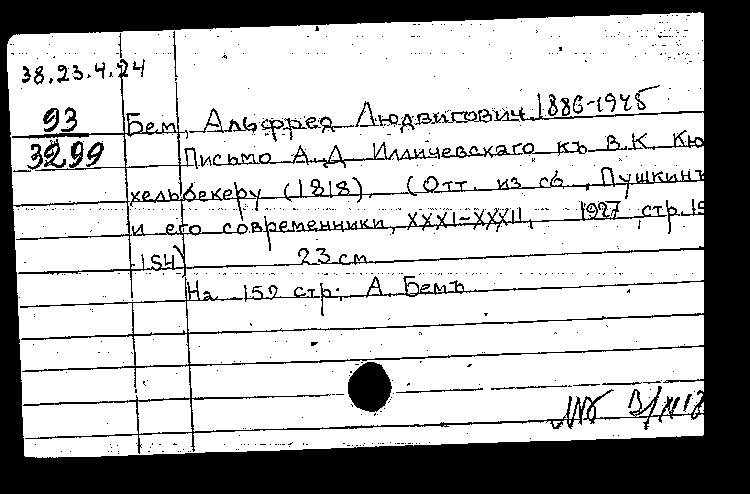 38.23.4.24
93 Бем, Альфред Людвигович, 1886-1945
3299 Письмо А.Д Илличевскаго къ В.К. Кю
хельбекеру (1818). (Отт. из сб. "Пушкинъ
и его современники, XXXI-XXXII, 1927, стр. 15
154) 23 см
На 152 стр: А. Бемъ